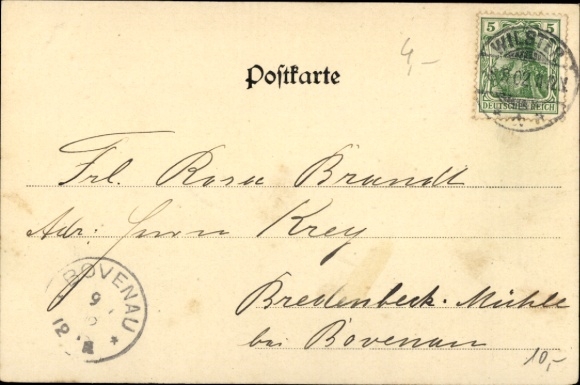 4,-
5 5
WILSTER
DEUTSCHES REICH
Postkarte
Frl. Rosa Brandt
Adr: Herrn Krey
Bredenbeck-Mühle
bei Bovenau
BOVENAU
9
12
10,-